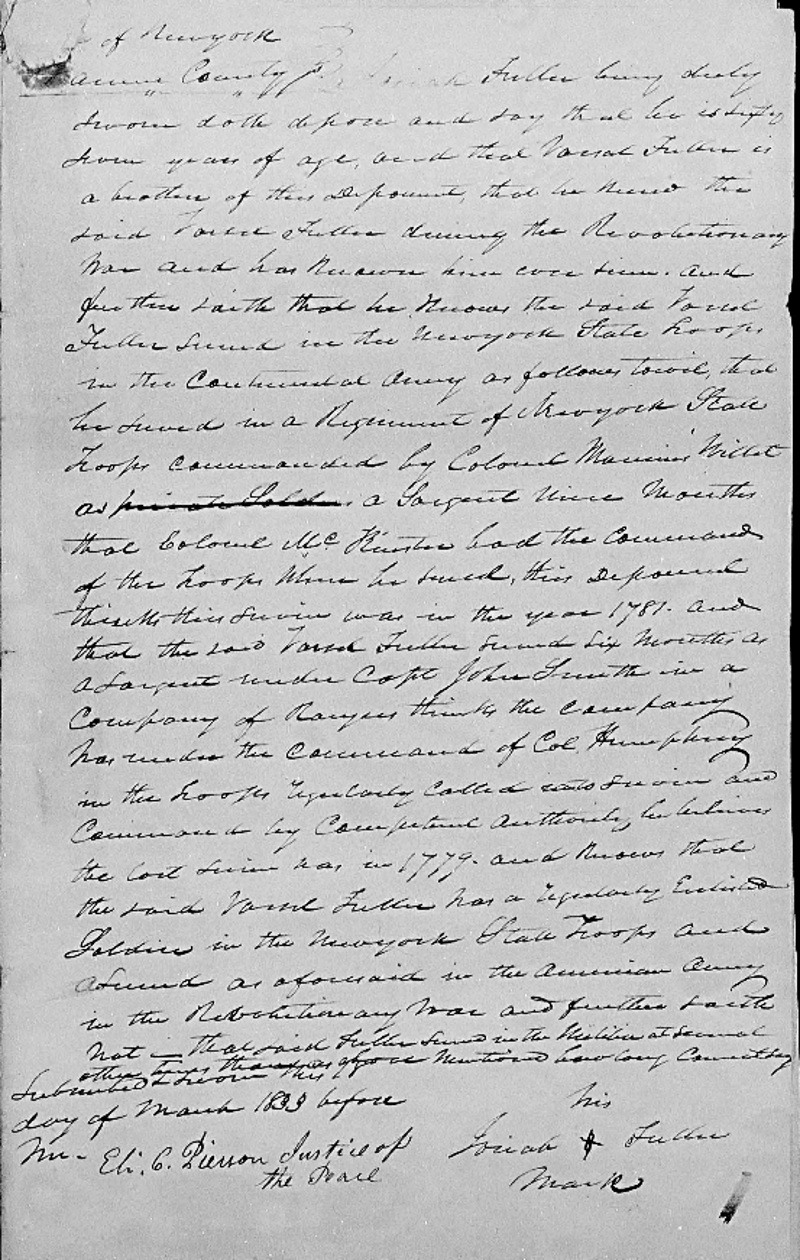 of Newyork
County Josiah Fuller being duly
sworn doth depose and say that he is sixty
seven years of age, and that Vassel Fuller is
a brother of this Deponent, that he knew the
said Vassel Fuller during the Revolutionary
War and has known him ever since. and
further saith that he knows the said Vassel
Fuller served in the Newyork State Troops
in the Continental Army as follows towit, that
he served in a Regiment of Newyork State
Troops commanded by Colonel Marinus Willet
as private Soldier a Sargent Nine Months
that Colonel Mc Kinster had the command
of the troops when he served, this Deponent
thinks this service was in the year 1781. and
that the said Vassel Fuller served six Months as
a Sargent under Capt John Smith in a
Company of Rangers thinks the company
was under the command of Col. Humphrey
in the troops regularly called into service and
Command by Competent Authority, he believes
the last service was in 1779. and knows that
the said Vassel Fuller was a regularly Enlisted
Soldier in the Newyork State Troops and
served as aforesaid in the American Army
in the Revolutionary War and further saith
not - that said Fuller served in the Militia at several
other times than as above Mentioned how long Cannot say
Subscribed & Sworn this
day of March 1833 before
Me - Eli. C. Pierson Justice of
the Peace
his
Josiah + Fuller
Mark